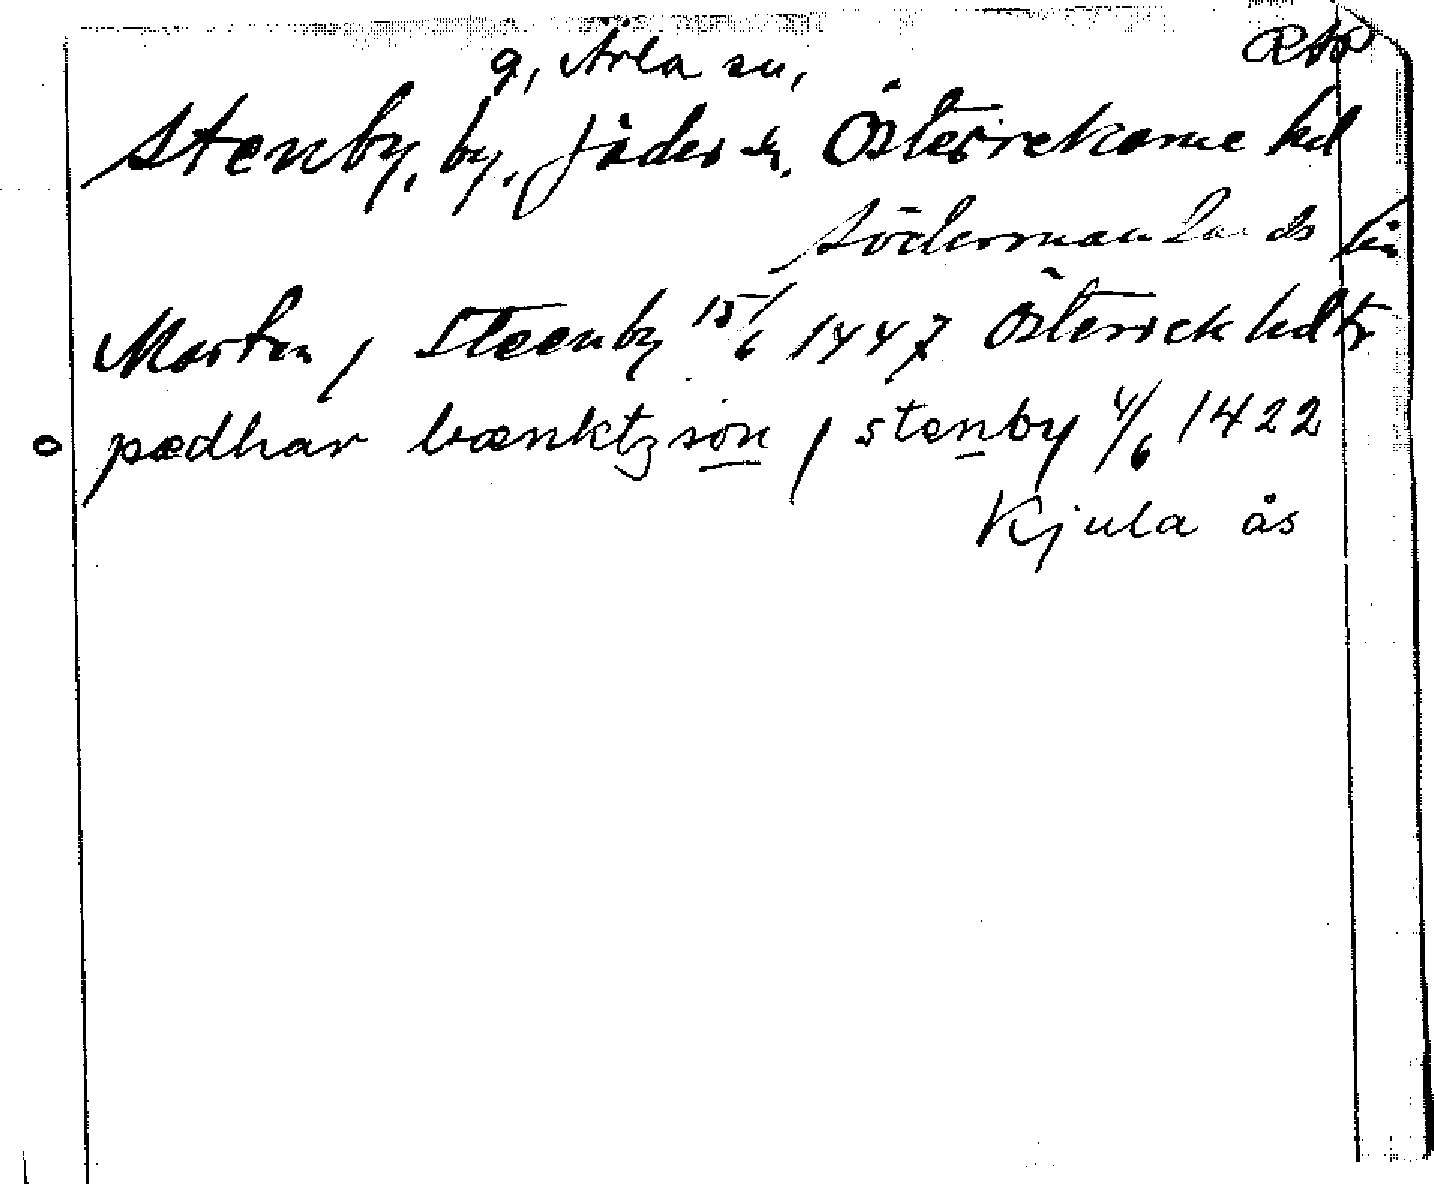 g, Ärla sn,
Stenby, by, Jäders sn. Österrekarne hd
Södermanlands län
Marten j Steenby 15/6 1447 Österrek hd
o pædhar bænktzson j stenby 4/6 1422
Kjula ås